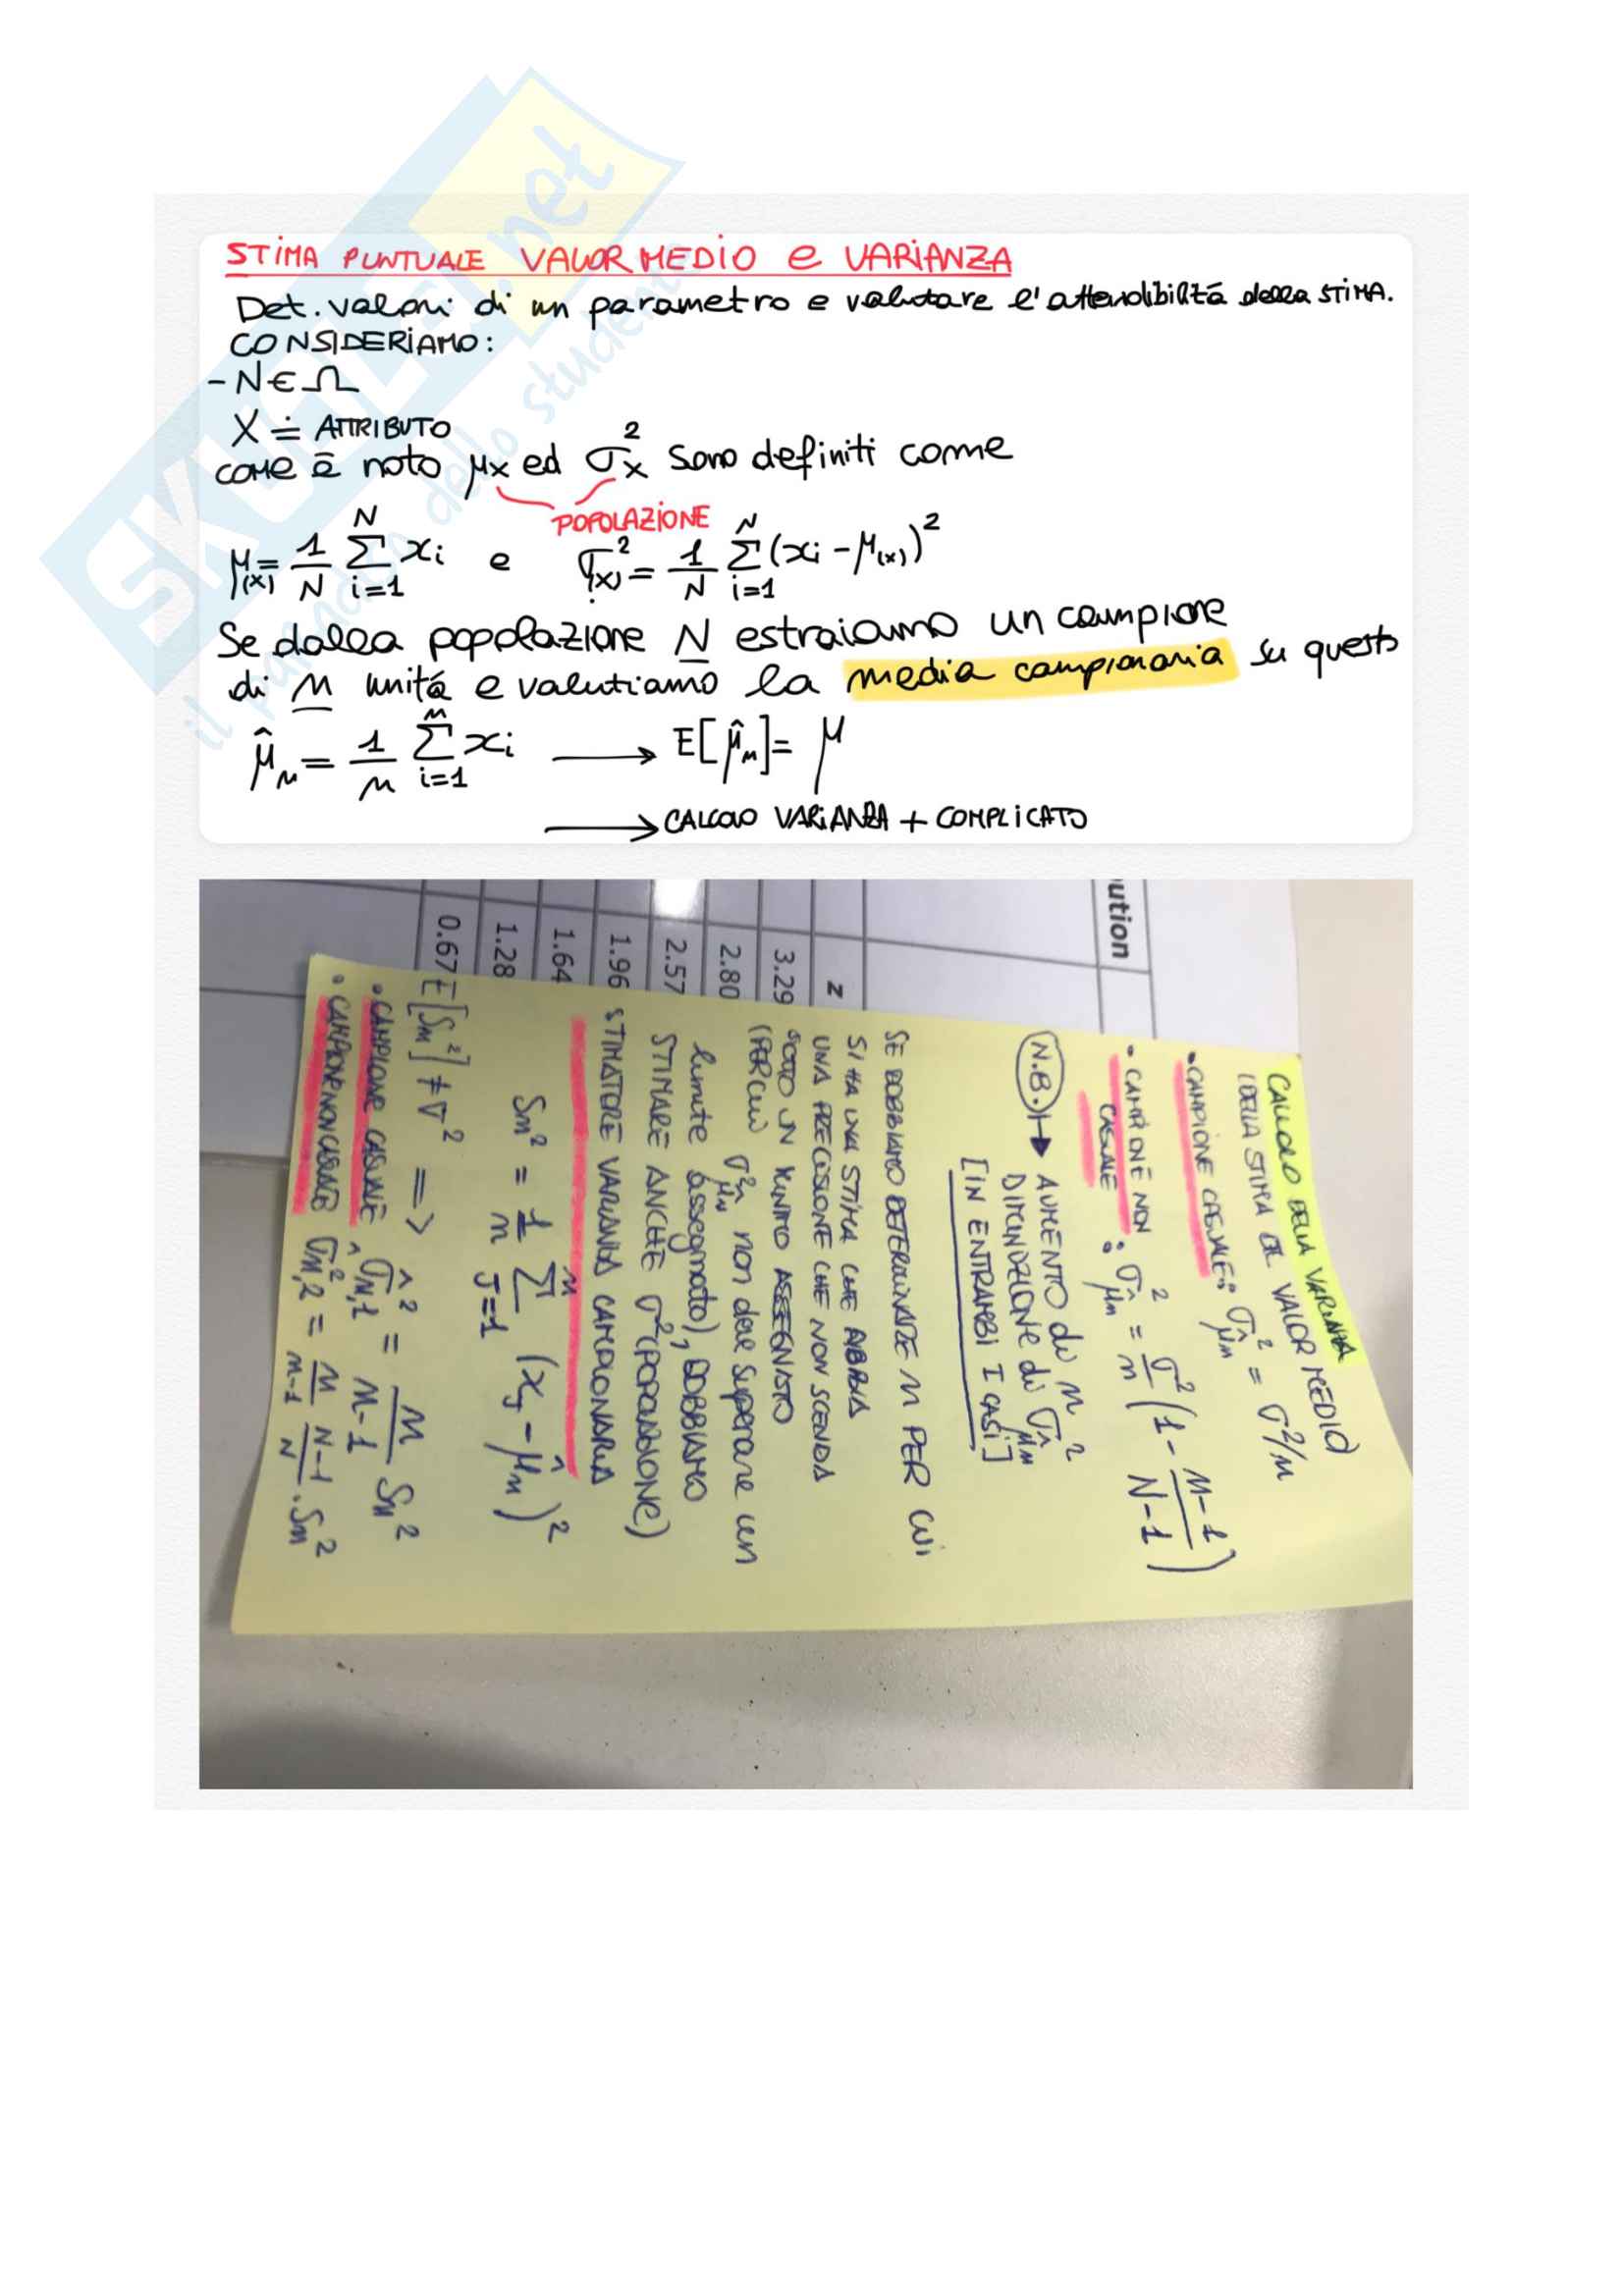 STIMA PUNTUALE VALOR MEDIO e VARIANZA
Det. valori di un parametro e valutare l'attendibilitá della STIMA.
CONSIDERIAMO:
- N ∈ Ω
X ≐ ATTRIBUTO
COME è noto μx ed σ²x sono definiti come
POPOLAZIONE
μ(x) = 1/N Σ(i=1..N) xi e σ²(x) = 1/N Σ(i=1..N) (xi - μ(x))²
Se dalla popolazione N estraiamo un campione
di n unitá e valutiamo la media campionaria su questo
μ̂n = 1/n Σ(i=1..n) xi → E[μ̂n] = μ
→ CALCOLO VARIANZA + COMPLICATO
SKUOLA.net
il paradiso dello studente
ution
z
3.29
2.80
2.57
1.96
1.64
1.28
0.67
CALCOLO DELLA VARIANZA
(DELLA STIMA DEL VALOR MEDIO)
• CAMPIONE CASUALE: σ²μ̂n = σ²/n
• CAMPIONE NON CASUALE: σ²μ̂n = σ²/n (1 - n-1/N-1)
N.B. → AUMENTO di n
DIMINUZIONE di σ²μ̂n
[IN ENTRAMBI I CASI]
SE DOBBIAMO DETERMINARE n PER CUI
SI HA UNA STIMA CHE ABBIA
UNA PRECISIONE CHE NON SCENDA
SOTTO UN PUNTO ASSEGNATO
(PER CUI σ²μ̂n non deve superare un
limite assegnato), DOBBIAMO
STIMARE ANCHE σ² (POPOLAZIONE)
STIMATORE VARIANZA CAMPIONARIA
Sn² = 1/n Σ(J=1..n) (xj - μ̂n)²
E[Sn²] ≠ σ² =>
• CAMPIONE CASUALE σ̂²n,1 = n/n-1 Sn²
• CAMPIONE NON CASUALE σ̂²n,2 = n/n-1 N-1/N · Sn²